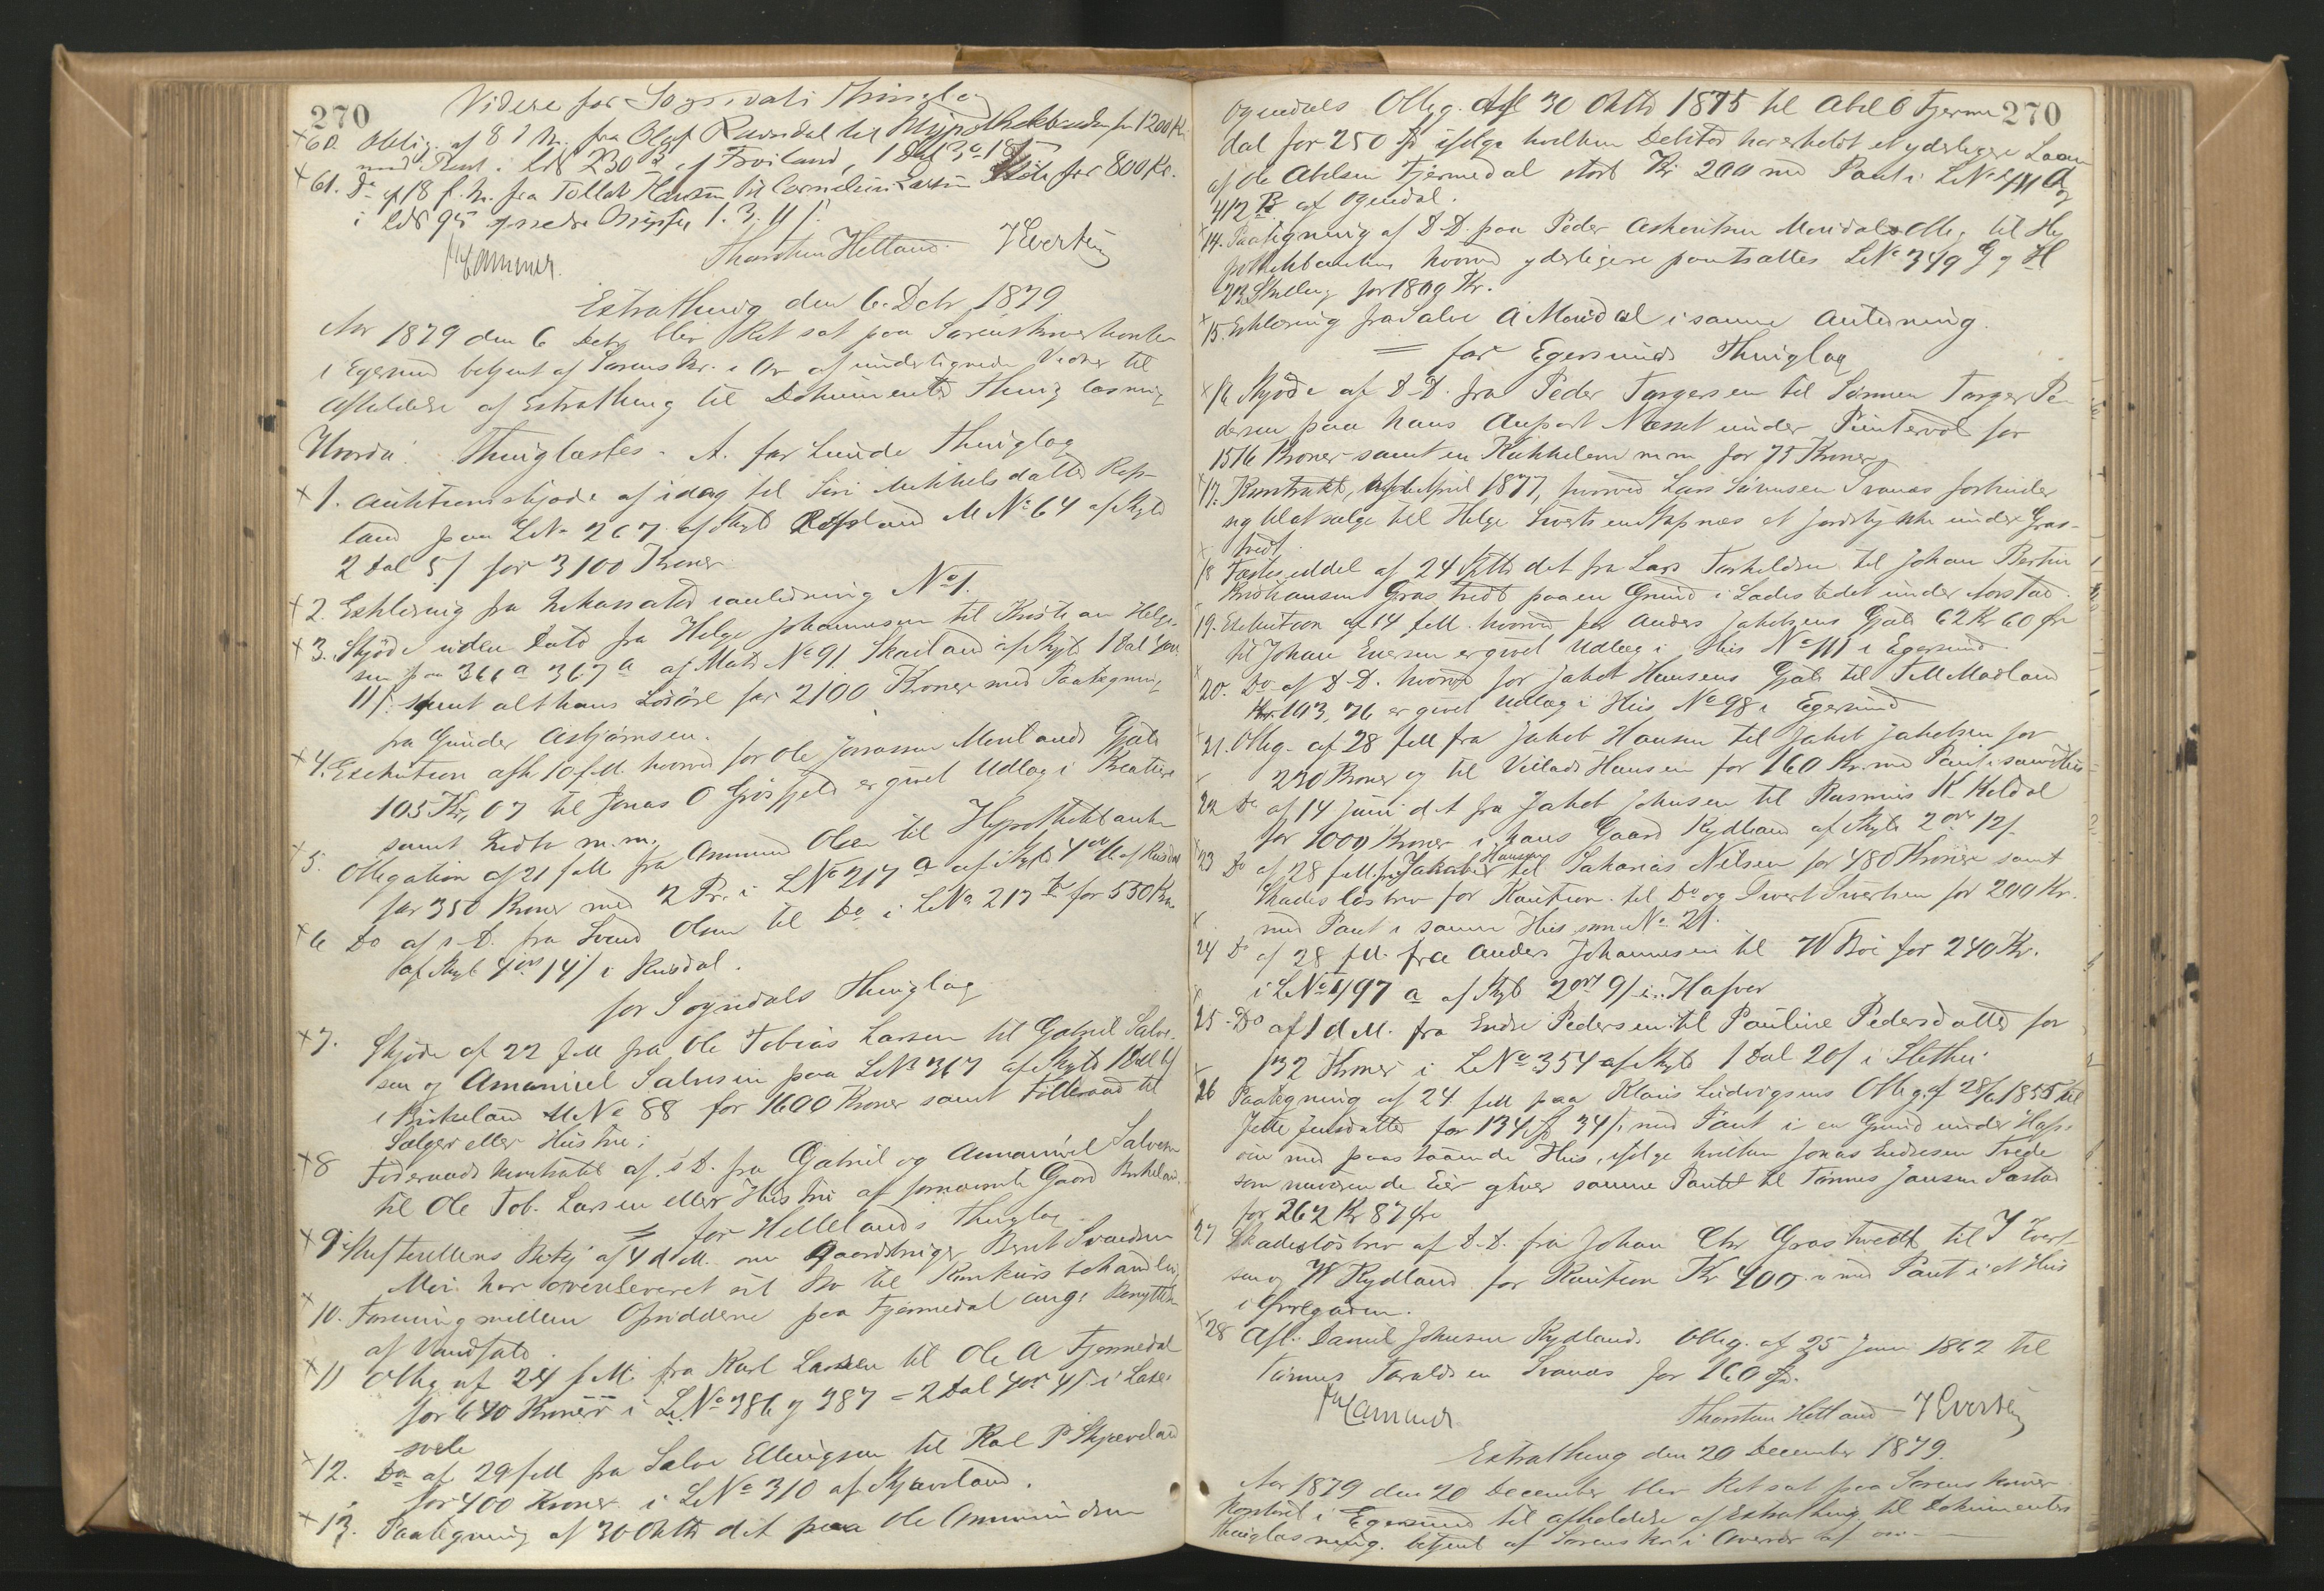 270
Videre for Sogndals Thinglag
60. Oblig. af 8 f. M. fra Olaf Ruusdal til Hypothekbanken for 1200 Kr.
med Pant i LN 230 af Froiland, 1 Dal
61. Do af 18 f. M. fra Tollak Hansen til Cornelius Larsen for 800 Kr.
i LN 95 1. 3. 11 /.
Hammer. Thorsten Hetland. I Evertsen
Extrathing den 6. Debr 1879
Aar 1879 den 6 Debr blev Ret sat paa Sorenskriverkontor
i Egersund betjent af Sorenskr. i Ov af undertegnede Vidner til
Afholdelse af Extrathing til Dokumenters Thinglæsning
Hvorda Thinglæstes. A. for Lunde Thinglag
1. Auktionsskjøde af idag til Siri Mikkelsdatter Refs-
land paa LN. 267 af Skyld Refsland M No 64 af Skyld
2 Dal 5 / for 3100 Kroner
2. Erklæring fra Inkassator i anledning No 1.
3. Skjøde uden Dato fra Helge Johannesen til Kristian Helge-
sen paa 366 a 367 a af Matr No 91 Skailand af Skyld 1 Dal
11 /. samt alt hans Løsøre for 2100 Kroner med Paategning
fra Gunder Asbjørnsen.
4. Exekution afh 10 f. M. hvorved for Ole Jonassen Moilands Gjæld
105 Kr, 07 til Jonas O Gjøsfjeld er givet Udlæg i Kreature
samt Indbo m.m.
5. Obligation af 21 f. M. fra Ommund Olsen til Hypothekbanken
for 350 Kroner med 2 Pr. i LNo 217 a af Skyld af Rusdal
6 Do af s. D. fra Svend Olsen til Do i LNo 217 b for 550 Kr.
af Skyld 4 ort 14 / i Rusdal.
for Sogndals Thinglag
7. Skjøde af 22 f. M. fra Ole Tobias Larsen til Gabriel Salve-
sen og Amanuel Salvesen paa LNo 367 af Skyld 1 Dal 6 /
i Birkeland M No 88 for 1600 Kroner samt Folleraad til
Sælger eller Hustru;
8 Føderaadskontrakt af s. D. fra Gabriel og Amanuel Salvesen
til Ole Tob. Larsen eller Hustru af fornævnte Gaard Birkeland.
= for Hellelands Thinglag
9. Skifterettens Bekj af 4 d. M. om Gaardbruger Bernt Svendsen
Moi har overleveret sit Bo til Konkursbehandling
10. Forening mellem Opsidderne paa Fjermedal ang. Benyttelse
af Vandfald
11 Oblig af 24 f. M. fra Karl Larsen til Ole A Fjermedal
for 640 Kroner i LNo 386 og 387 = 2 Dal 4 ort 4 / i Lase-
svele
12. Do af 29 f. M. fra Salve Ellingsen til Karl P Skjæveland
for 400 Kroner i LNo 310 af Skjæveland.
13. Paategning af 30 Oktb d. A. paa Ole Ommundsen
270
Ogndals Oblig. af 30 Oktb 1875 til Abel O Fjerme-
dal for 250 Sp ifølge hvilken Debitor har erholdt et yderligere Laan
af Ole Abelsen Fjermedal stort Kr 200 med Pant i LNo 411 a og
412 B af Ogndal.
14. Paategning af D. D. paa Peder Askeritsen Moridals Oblig. til Hy-
pothekbanken hvorved yderligere pantsættes LNo 349 G og H
23 Skilling for 1800 Kr.
15. Erklæring fra Salve A Moidal i samme Anledning.
= for Egersunds Thinglag
16 Skjøde af D. D. fra Peder Torgersen til Sønnen Torger Pe-
dersen paa hans Anpart Næsset under Puntervold for
1516 Kroner samt en Kakkelovn m m for 75 Kroner
17. Kontrakt, af April 1877, hvorved Lars Sivertsen Svanæs forbinder
sig til at sælge til Helge Sivertsen Skapnes et Jordstykke under Gras-
tvedt.
18 Fæsteseddel af 24 Septb d. A. fra Lars Torkeldsen til Johan Bertin
Kristiansen Grastvedt paa en Grund i Ladestedet under Aarstad.
19. Exekution af 14 f. M. hvorved for Anders Jakobsens Gjæld 62 Kr 60 Øre
til Johan Evensen er givet Udlæg i Hus No 111 i Egersund
20. Do af D. D. hvorved for Jakob Hansens Gjæld til T M Madland
Kr. 193, 76 er givet Udlæg i Hus No 98 i Egersund
21. Oblig. af 28 f. M. fra Jakob Hansen til Jakob Jakobsen for
220 Kroner og til Villads Hansen for 160 Kr. med Pant i samme Hus
22 Do af 14 Juni d. A. fra Jakob Johnsen til Rasmus K. Koldal
for 1000 Kroner i hans Gaard Rydland af Skyld 2 ort 12 /
23 Do af 28 f. M. fra Jakob Hansen til Sakarias Nilsen for 480 Kroner samt
Skadesløsbrev for Kaution til Do og Sivert Sivertsen for 200 Kr.
med Pant i samme Hus som No 21.
24 Do af 28 f. M. fra Anders Johannesen til W Boe for 240 Kr.
i LNo 497 a af Skyld 2 ort 9 / i Hafsø
25. Do af 1 d. M. fra Endre Pedersen til Pauline Pedersdatter for
132 Kroner i LNo 354 af Skyld 1 Dal 20 / i Slettebø
26 Paategning af 24 f. M. paa Klaus Ludvigsens Oblig. af 28/6 1855 til
Jette Jensdatter for 134 Sp 34 / med Pant i en Grund under Haf-
sø med paastaaende Hus, ifølge hvilken Jonas Endresen Tvede
som nuværende Eier giver samme Pant til Tønnes Jansen Sastad
for 262 Kr 87 Øre
27 Skadesløsbrev af D. D. fra Johan Chr Grastvedt til I Evert-
sen og W Rydland for Kaution Kr 400 med Pant i et Hus
i Ørregaden.
28 Afl. Daniel Johnsen Rydlands Oblig. af 25 Juni 1862 til
Tønnes Taraldsen Svanæs for 160 Sp.
Hammer Thorsten Hetland I Evertsen
Extrathing den 20 December 1879.
Aar 1879 den 20 December blev Ret sat paa Sorenskriver-
kontoret i Egersund til afholdelse af Extrathing til Dokumenters
Thinglæsning. betjent af Sorenskr i Overvær af